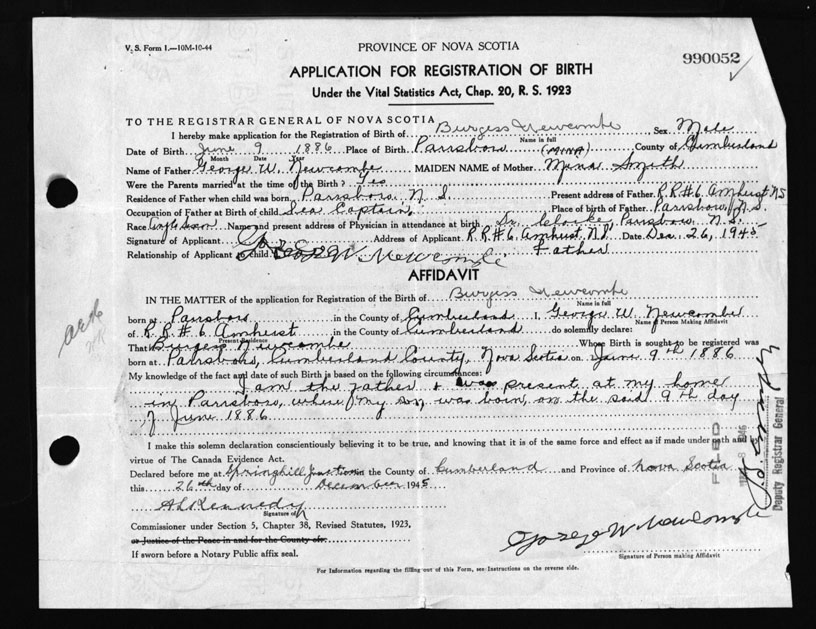 V. S. Form 1.—10M-10-44
PROVINCE OF NOVA SCOTIA
990052
APPLICATION FOR REGISTRATION OF BIRTH
Under the Vital Statistics Act, Chap. 20, R. S. 1923
TO THE REGISTRAR GENERAL OF NOVA SCOTIA
I hereby make application for the Registration of Birth of Burgess Newcombe Sex Male
Name in full
Date of Birth June 9 1886 Place of Birth Parrsboro (MINA) County of Cumberland
Month Date Year
Name of Father George W. Newcombe MAIDEN NAME of Mother Mina Smith
Were the Parents married at the time of the Birth? Yes
Residence of Father when child was born Parrsboro N. S. Present address of Father R.R.#6 Amherst NS
Occupation of Father at Birth of child Sea Captain Place of birth of Father Parrsboro, N.S.
Race Name and present address of Physician in attendance at birth Dr. Parrsboro, N.S.
Signature of Applicant Address of Applicant R.R.#6, Amherst, N.S. Date Dec. 26, 1945
Relationship of Applicant to child George W Newcombe Father
AFFIDAVIT
IN THE MATTER of the application for Registration of the Birth of Burgess Newcombe
Name in full
born at Parrsboro in the County of Cumberland I, George W. Newcombe
Name of Person Making Affidavit
of R.R.#6 Amherst in the County of Cumberland do solemnly declare:
Present Residence
That Burgess Newcombe Whose Birth is sought to be registered was
born at Parrsboro, Cumberland County, Nova Scotia on June 9th 1886
My knowledge of the fact and date of such Birth is based on the following circumstances:
I am the father & was present at my home
in Parrsboro, where my son, was born, on the said 9th day
of June 1886
I make this solemn declaration conscientiously believing it to be true, and knowing that it is of the same force and effect as if made under oath and by
virtue of The Canada Evidence Act.
Declared before me at Springhill Junction in the County of Cumberland and Province of Nova Scotia
this 26th day of December 1945
A Kennedy
Signature of
Commissioner under Section 5, Chapter 38, Revised Statutes, 1923,
or Justice of the Peace in and for the County of
If sworn before a Notary Public affix seal.
George W Newcombe
Signature of Person making Affidavit
For Information regarding the filling out of this Form, see Instructions on the reverse side.
FILED
Deputy Registrar General